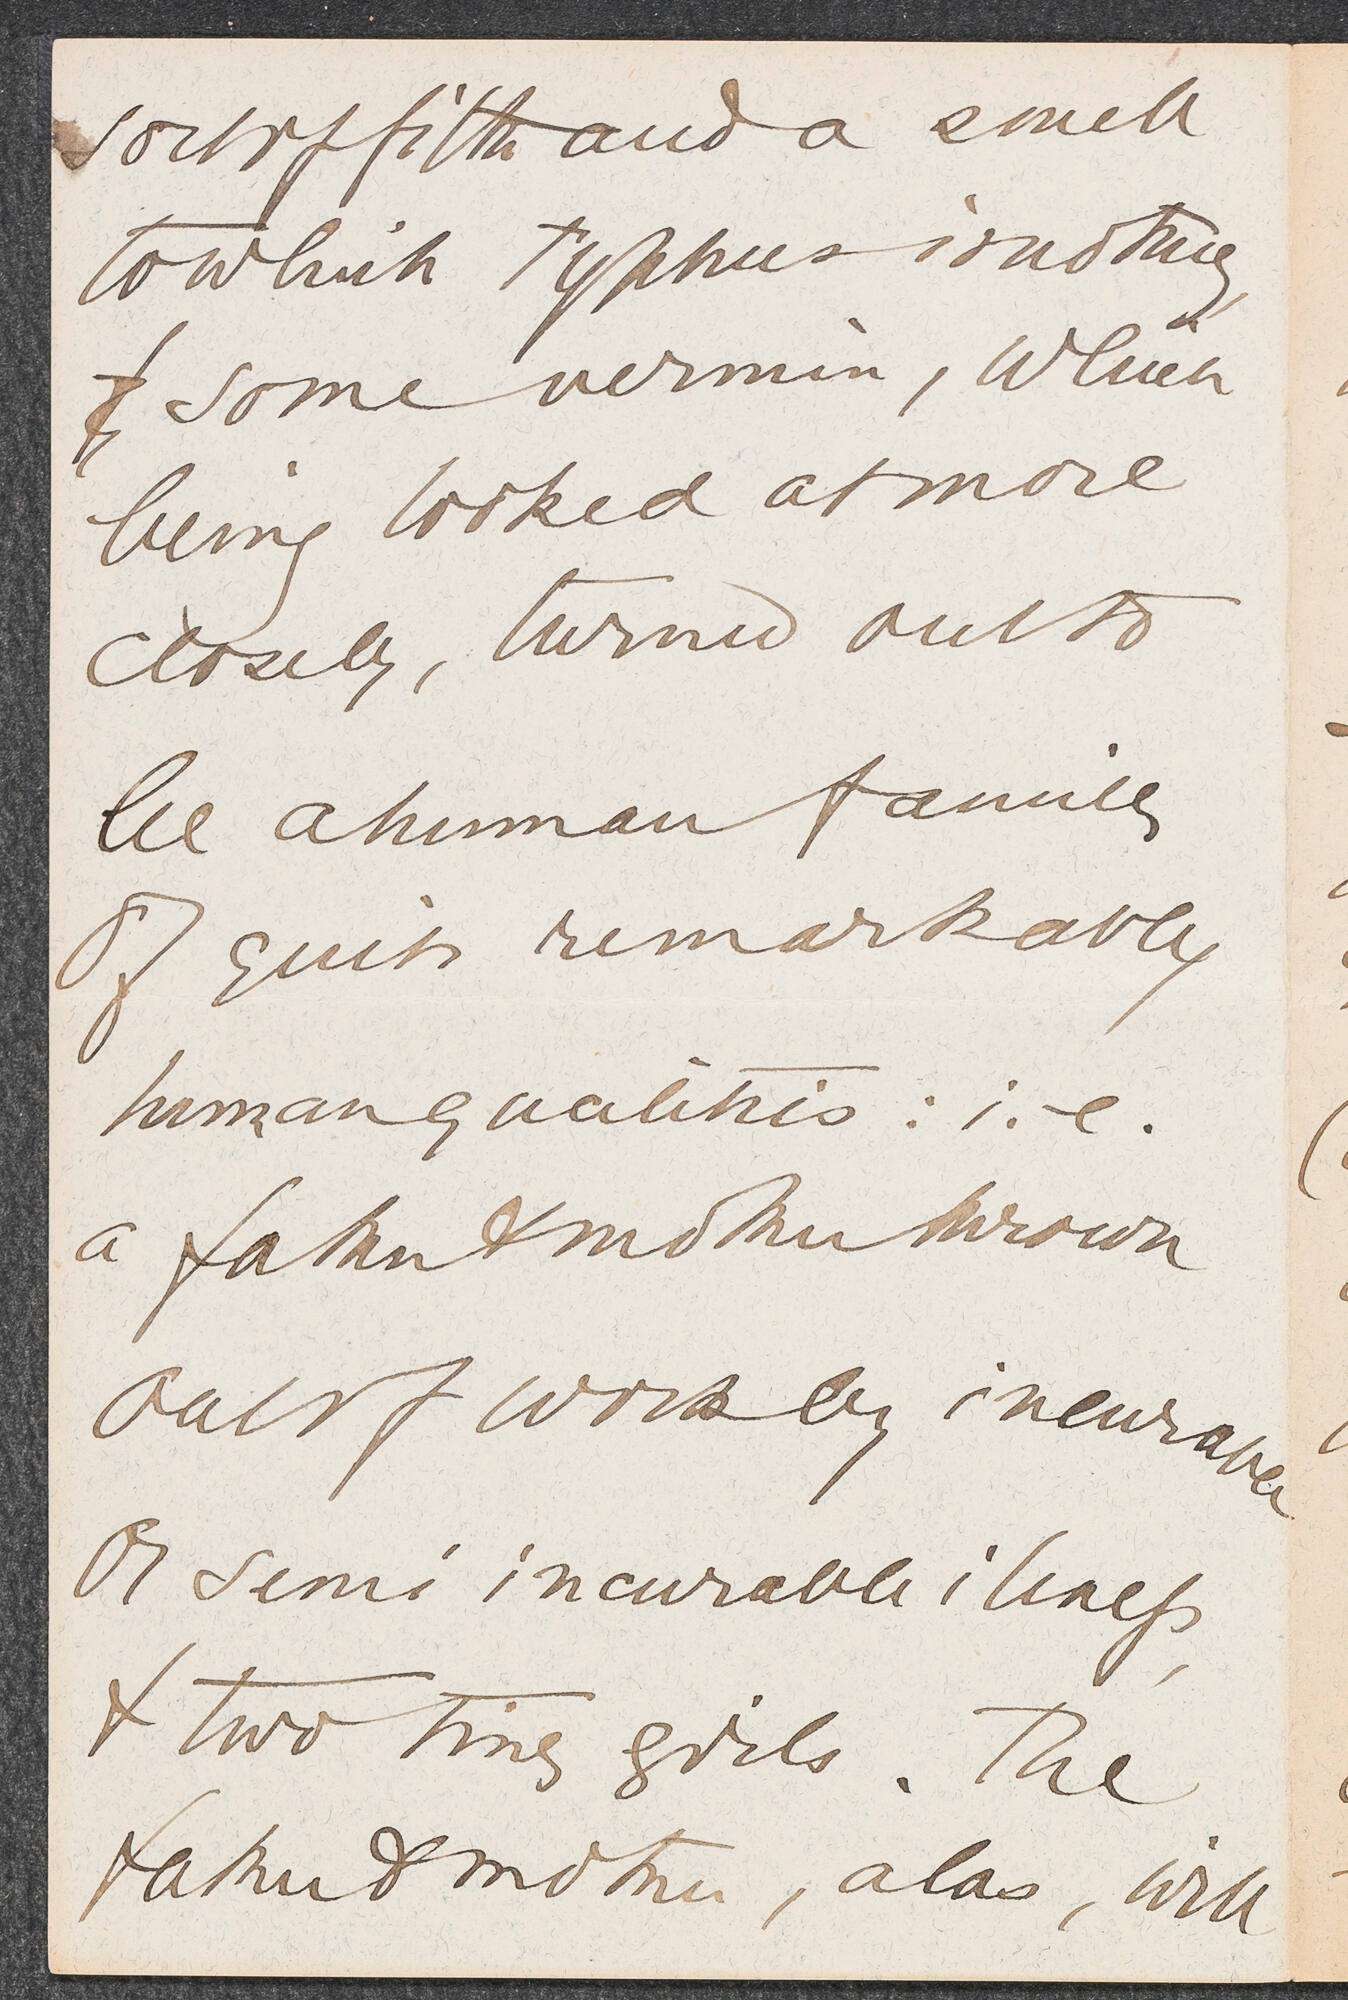 sort of filth and a smell
to which typhus is nothing,
& some vermin, which
being looked at more
closely, turned out to
be a human family
of quite remarkably
human qualities: i.e.
a father & mother thrown
out of work by incurable
or semi incurable illness,
& two tiny girls. The
father & mother, alas, will